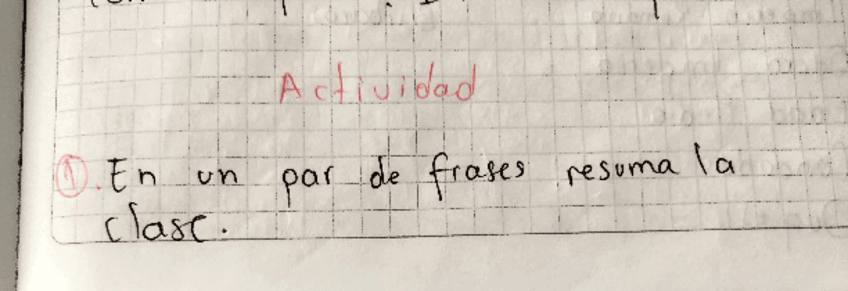 Actividad
1. En un par de frases resuma la
clase.